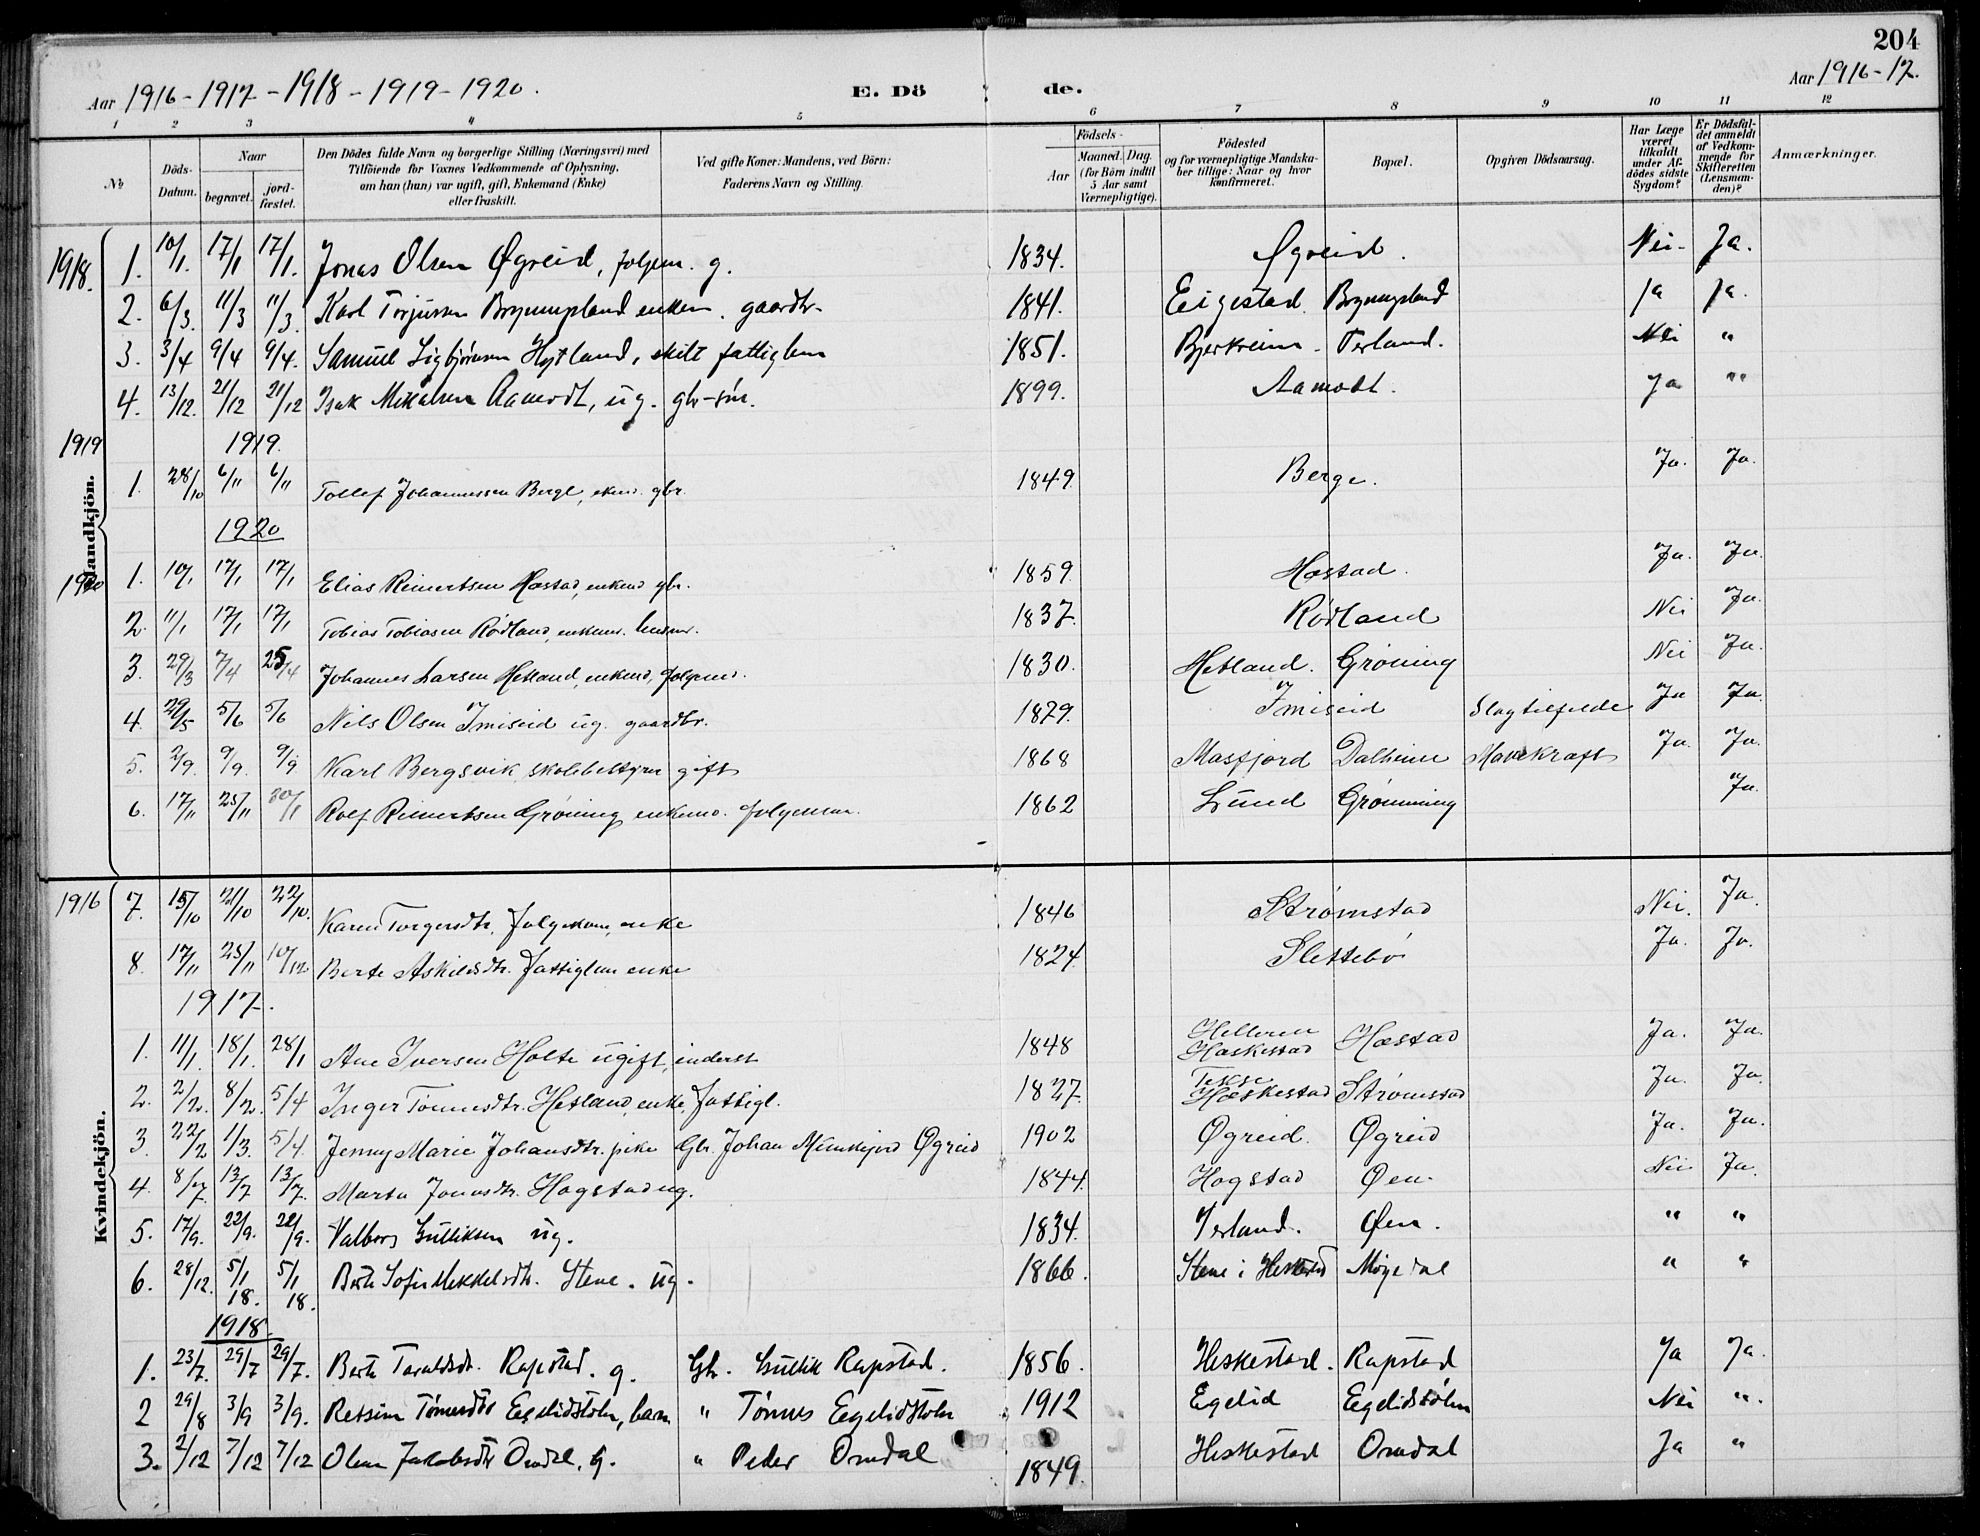 204
Aar 1916-1917-1918-1919-1920. E. Dö de. Aar 1916-17.
1 2 3 4 5 6 7 8 9 10 11 12
No Döds-Datum. Naar begravet. jordfæstet. Den Dödes fulde Navn og borgerlige Stilling (Næringsvei) med Tilföiende for Voxnes Vedkommende af Oplysning, om han (hun) var ugift, gift, Enkemand (Enke) eller fraskilt. Ved gifte Koner: Mandens, ved Börn: Faderens Navn og Stilling. Födsels- Aar Maaned. Dag. (for Börn indtil 5 Aar samt Værnepligtige). Födested og for værnepligtige Mandskaber tillige: Naar og hvor konfirmeret. Bopæl. Opgiven Dödsaarsag. Har Læge været tilkaldt under Afdödes sidste Sygdom? Er Dödsfaldet anmeldt af Vedkommende for Skifteretten (Lensmanden)? Anmærkninger.
Mandkjön.
1918. 1. 10/1. 17/1 17/1. Jonas Olsen Øgreid, folgem. g. 1834. Øgreid. Nei- Ja.
2. 6/3. 11/3 11/3. Karl Torjussen enkem. gaardbr. 1841. Eigestad. Ja Ja.
3. 3/4 9/4 9/4. Samuel Sigbjørnsen Hytland, skilt fattiglem 1851. Bjerkreim - Terland. Nei "
4. 13/12. 21/12 21/12 Isak Mikalsen Aamodt, ug. gbr-søn. 1899. Aamodt. Ja "
1919 1919.
1. 28/10 6/11 6/11 Tollef Johannessen Berge, ekem. gbr. 1849. Berge. Ja. Ja.
1920
1920 1. 10/1 17/1 17/1 Elias Reinertsen Hæstad, enkem gbr. 1859. Hæstad. Ja. Ja.
2. 11/1 17/1 17/1 Tobias Tobiasen Rødland, enkem. husm. 1837. Rødland Nei Ja.
3. 29/3 7/4 25/4 Johannes Larsen Hetland, enkem, folgem. 1830. Hetland. Grøning Nei Ja.
4. 29/5 5/6 5/6 Nils Olsen Imiseid ug. gaardbr. 1829. Imiseid Slagtilfelde Ja Ja.
5. 2/9. 9/9. 9/9. Karl Bergsvik, skolebestyrer gift 1868 Masfjord Dalheim Mavekræft Ja. Ja.
6. 17/11 25/11 30/1 Rolf Reinertsen Grøning enkem. folgeman. 1862 Lund Grønning Ja.
Kvindekjön.
1916 7. 15/10 21/10 22/10. Karen Torgersdtr. folgekone, enke 1846 Strømstad Nei. Ja.
8. 17/11 25/11 10/12 Berte Askildsdtr. fattiglem enke 1824. Slettebø Ja. Ja.
1917.
1. 11/1. 18/1. 28/1 Ane Iversen Holte ugift, inderst 1848 Helleren Heskestad Hæstad Ja. Ja.
2. 2/2. 8/2. 5/4 Inger Tønnesdtr. Hetland, enke, fattigl. 1827. Tekse Heskestad Strømstad Ja. Ja.
3. 22/2 1/3. 5/4. Jenny Marie Johansdtr. pike Gbr. Johan Øgreid 1902 Øgreid. Øgreid Ja. Ja.
4. 8/7. 13/7 13/7. Marta Jonasdtr. Hogstad ug. 1844. Hogstad Øen. Nei Ja.
5. 17/9. 22/9. 22/9. Valborg Gulliksen ug. 1834. Terland. Øen. " "
6. 28/12. 5/1 18. 5/1 18. Berte Sofie Mekkelsdtr. Stene. ug. 1866. Stene i Heskestad Møgedal " "
1918.
1. 23/7. 29/7 29/7. Berte Taraldsdr. Rapstad. g. Gbr. Gullik Rapstad. 1856. Heskestad. Rapstad Ja Ja.
2 29/8 3/9 3/9. Retsine Tønnesdtr Egelidstølen, barn " Tønnes Egelidstølen 1912 Egelid Egelidstølen Nei ".
3. 2/12 7/12 7/12 Olene Jakobsdtr Omdal, g. " Peder Omdal 1849. Heskestad Omdal Ja "